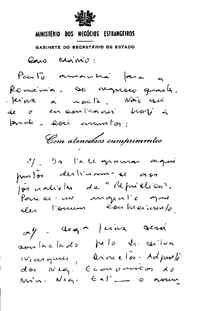 MINISTÉRIO DOS NEGÓCIOS ESTRANGEIROS
GABINETE DO SECRETÁRIO DE ESTADO
Caro Mário:
Parto amanhã para a
Roménia. Só regresso quarta-
feira à noite. Não sei
se o encontrarei hoje à
tarde. Dois assuntos:
Com atenciosos cumprimentos
1/. Os telegramas aqui
juntos destinam-se aos
jornalistas da "República".
Parece-me urgente que
eles tomem conhecimento.
2/. feira será
contactado pelo Dr. Silva
Marques, Director-Adjunto
dos Neg. Económicos do
Min. Neg. Est. — o